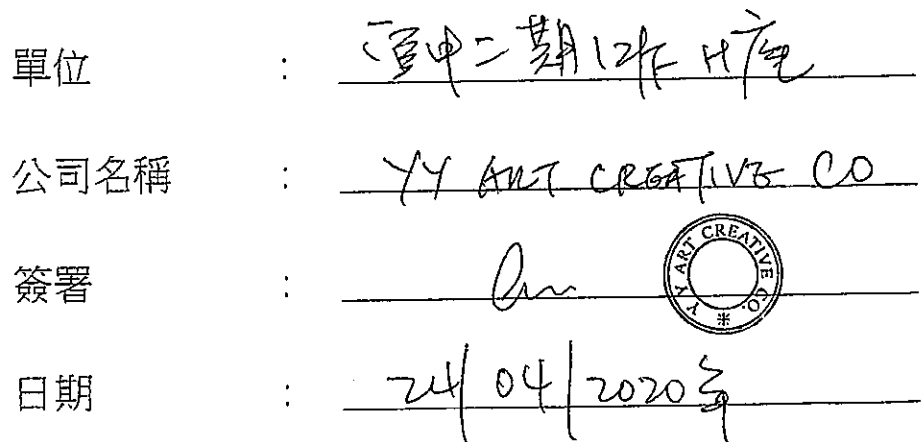 單位 : 中二期 12/F H座
公司名稱 : YY ART CREATIVE CO
簽署 :
YY ART CREATIVE CO.
日期 : 24/04/2020年